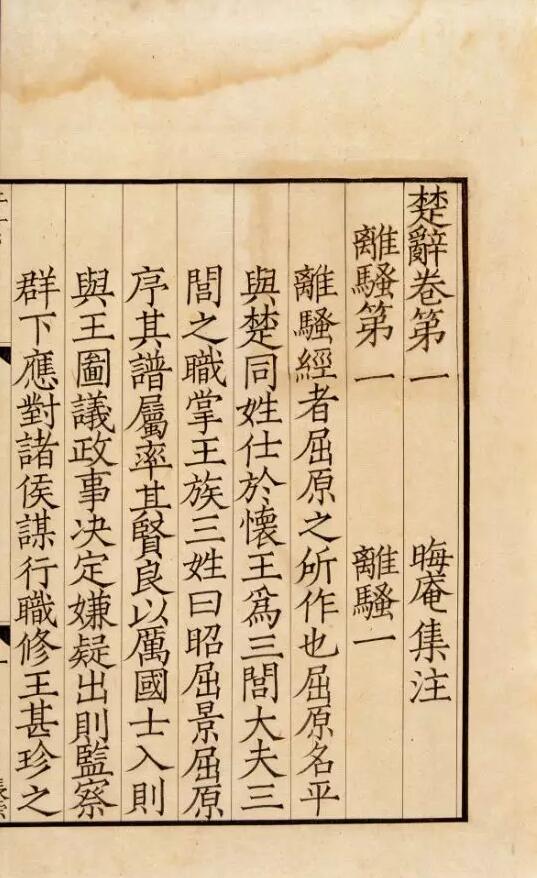 楚辭卷第一 晦庵集注
離騷第一 離騷一
離騷經者屈原之所作也屈原名平
與楚同姓仕於懷王為三閭大夫三
閭之職掌王族三姓曰昭屈景屈原
序其譜屬率其賢良以厲國士入則
與王圖議政事决定嫌疑出則監察
群下應對諸侯謀行職修王甚珍之